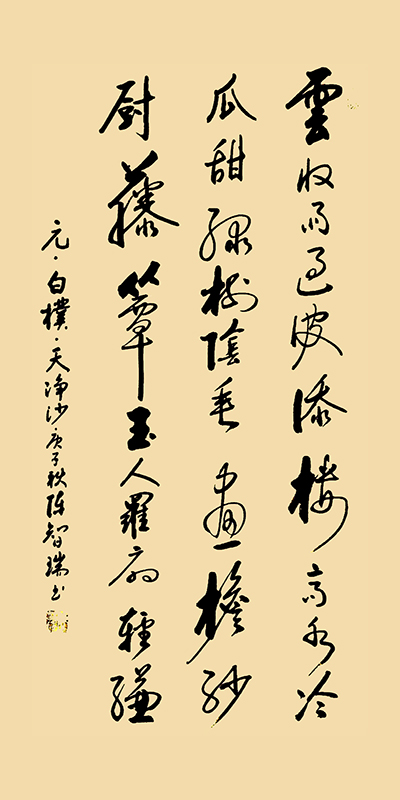 雲收雨過波添樓高水冷
瓜甜綠樹陰垂畫檐紗
厨藤簟玉人羅扇輕縑
元·白樸·天净沙庚子秋陈智瑞书